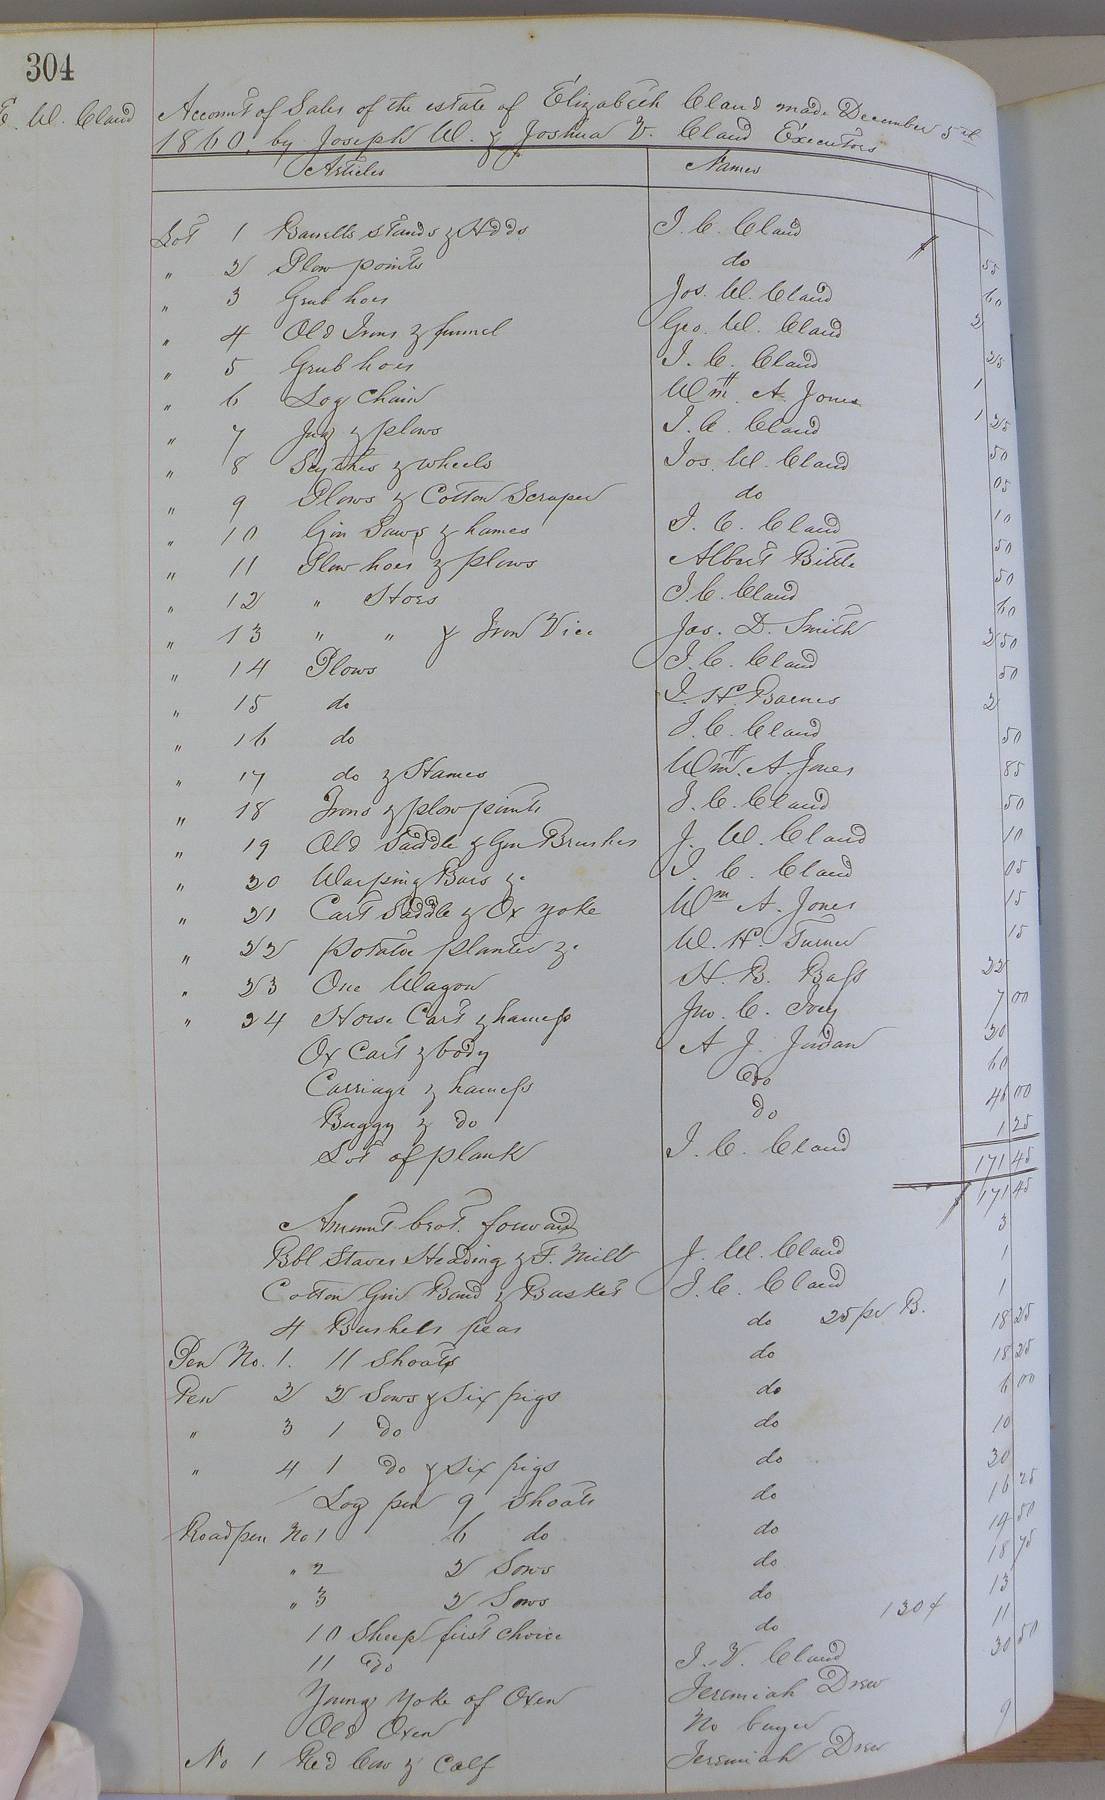 304
E. W. Claud
Account of Sales of the estate of Elizabeth Claud made December 5th
1860, by Joseph W. & Joshua V. Claud Executors
Articles Names
Lot 1 Barrells stands & Adds J. C. Claud $ 55
" 2 Plow points do 60
" 3 Grub hoes Jos. W. Claud 2
" 4 Old Irons & funnel Geo. W. Claud 25
" 5 Grub hoes J. C. Claud 1
" 6 Log Chain Wm A. Jones 1 25
" 7 Jug & plows J. C. Claud 50
" 8 Scythes & wheels Jos. W. Claud 05
" 9 Plows & Cotton Scraper do 10
" 10 Gin Saws & hames J. C. Claud 50
" 11 Plow hoes & plows Albert Bittle 50
" 12 " Hoes J. C. Claud 60
" 13 " " & Iron Vice Jas. D. Smith 2 50
" 14 Plows J. C. Claud 50
" 15 do J. H. Barnes 2
" 16 do J. C. Claud 50
" 17 do & Hames Wm. A. Jones 85
" 18 Irons & plow points J. C. Claud 50
" 19 Old Saddle & Gin Brushes J. W. Claud 10
" 20 Warping Bars &c J. C. Claud 05
" 21 Cart Saddle & Ox yoke Wm A. Jones 15
" 22 potatoe planter &c W. H. Turner 15
" 23 One Wagon H. B. Bass 22
" 24 Horse Cart & harness Jno. C. 7 00
Ox Cart & body A J. Jordan 20
Carriage & harness do 60
Buggy & do do 46 00
Lot of plank J. C. Claud 1 25
171 45
Amount brot. forward $ 171 45
Bbl Staves Heading & F. Mill J. W. Claud 3
Cotton Gin Band & Basket J. C. Claud 1
4 Bushels peas do 25 pr B. 1
Pen No. 1. 11 Shoats do 18 25
Pen 2 2 Sows & Six pigs do 18 25
" 3 1 do do 6 00
" 4 1 do & Six pigs do 10
Log pen 9 Shoats do 30
Road pen No 1 6 do do 16 25
" 2 2 Sows do 14 50
" 3 2 Sows do 18 75
10 Sheep first choice do 130 13
11 do J. V. Claud 11
Young Yoke of Oxen Jeremiah Drew 30 50
Old Oxen No buyer
No 1 Red Cow & Calf Jeremiah Drew 9